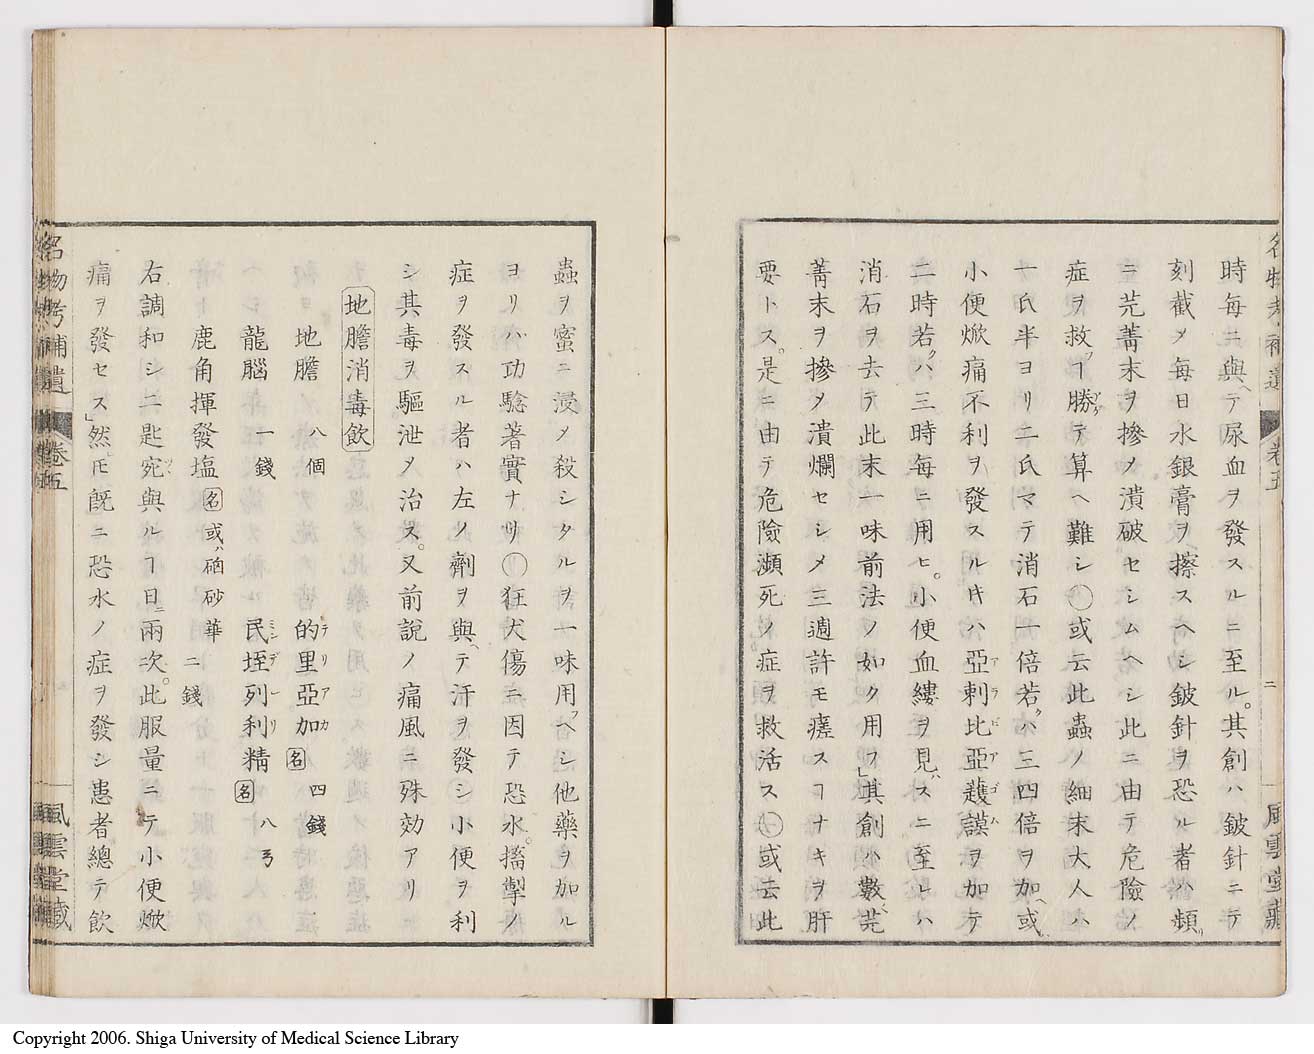 名物考補遺 卷五 二 風雲堂藏
時每ニ與ヘテ尿血ヲ發スルニ至ル。其創ハ鈹針ニテ
刻截メ每日水銀膏ヲ擦スヘシ鈹針ヲ恐ル者ハ頻リ
ニ芫菁末ヲ摻メ潰破セシムヘシ此ニ由テ危險ノ
症ヲ救フヿ勝アゲテ算ヘ難シ○或云此蟲ノ細末大人ハ
一氏半ヨリ二氏マテ消石一倍若クハ三四倍ヲ加ヘ或
小便㷔痛不利ヲ發スルキハ亞剌比亞謢謨アラビアゴムヲ加テ
二時若クハ三時每ニ用ヒ。小便血縷ヲ見ハスニ至レハ
消石ヲ去テ此末一味前法ノ如ク用フ」其創ハ數芫
菁末ヲ摻タ潰爛セシメ三週許モ瘥スヿナキヲ肝
要トス。是ニ由テ危險瀕死ノ症ヲ救活ス○或云此
蟲ヲ蜜ニ浸メ殺シタルヲ一味用フヘシ他藥ヲ加ル
ヨリハ功騐著實ナリ○狂犬傷ニ因テ恐水。搐掣ノ
症ヲ發スル者ハ左ノ劑ヲ與ヘテ汗ヲ發シ小便ヲ利
シ其毒ヲ驅泄ヌ治ス。又前説ノ痛風ニ殊効アリ
地膽消毒飮
地膽 八個 的里亞加テリアカ 名 四錢
龍腦 一錢 民垤列利精ミンデーリ 名 八弓
鹿角揮發塩 名 或ハ硇砂華 二錢
右調和シ二匙宛ツヽ與ルヿ日ニ兩次。此服量ニテ小便㷔
痛ヲ發セス」然𪜈既ニ恐水ノ症ヲ發シ患者總テ飮
名物考補遺 卷五 風雲堂藏
Copyright 2006. Shiga University of Medical Science Library